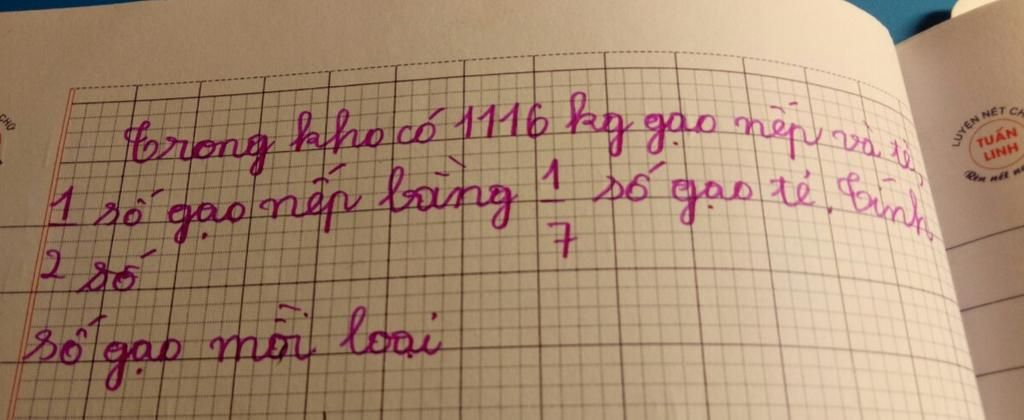 CHỮ
Trong kho có 1116 kg gạo nếp và tẻ,
1 số gạo nếp bằng 1/7 số gạo tẻ. Tính
2 số
số gạo mỗi loại
LUYỆN NÉT CH
TUẤN
LINH
Rèn nết n